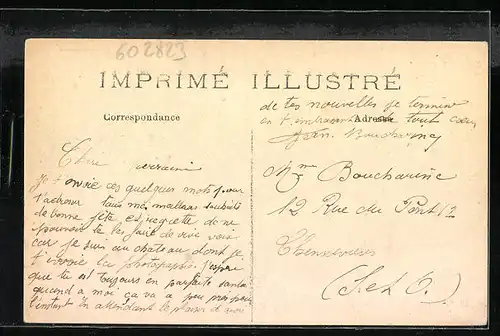 602823
IMPRIMÉ ILLUSTRÉ
Correspondance
Adresse
Chère
Je t'envoie ces quelques mots pour
t'adresser tous mes meilleurs souhaits
de bonne fête et regrette de ne
pouvoir te les faire de vive voix
car je suis au chateau dont je
t'envoie la photographie. J'espère
que tu est toujours en parfaite santé
quand a moi ça va a peu près pour
l'instant En attendant le plaisir d'avoir
de tes nouvelles je termine
en t'embrassant de tout cœur
Jean
Mme Boucharine
12 Rue du Pont 12
Chennevières
(S et O.)